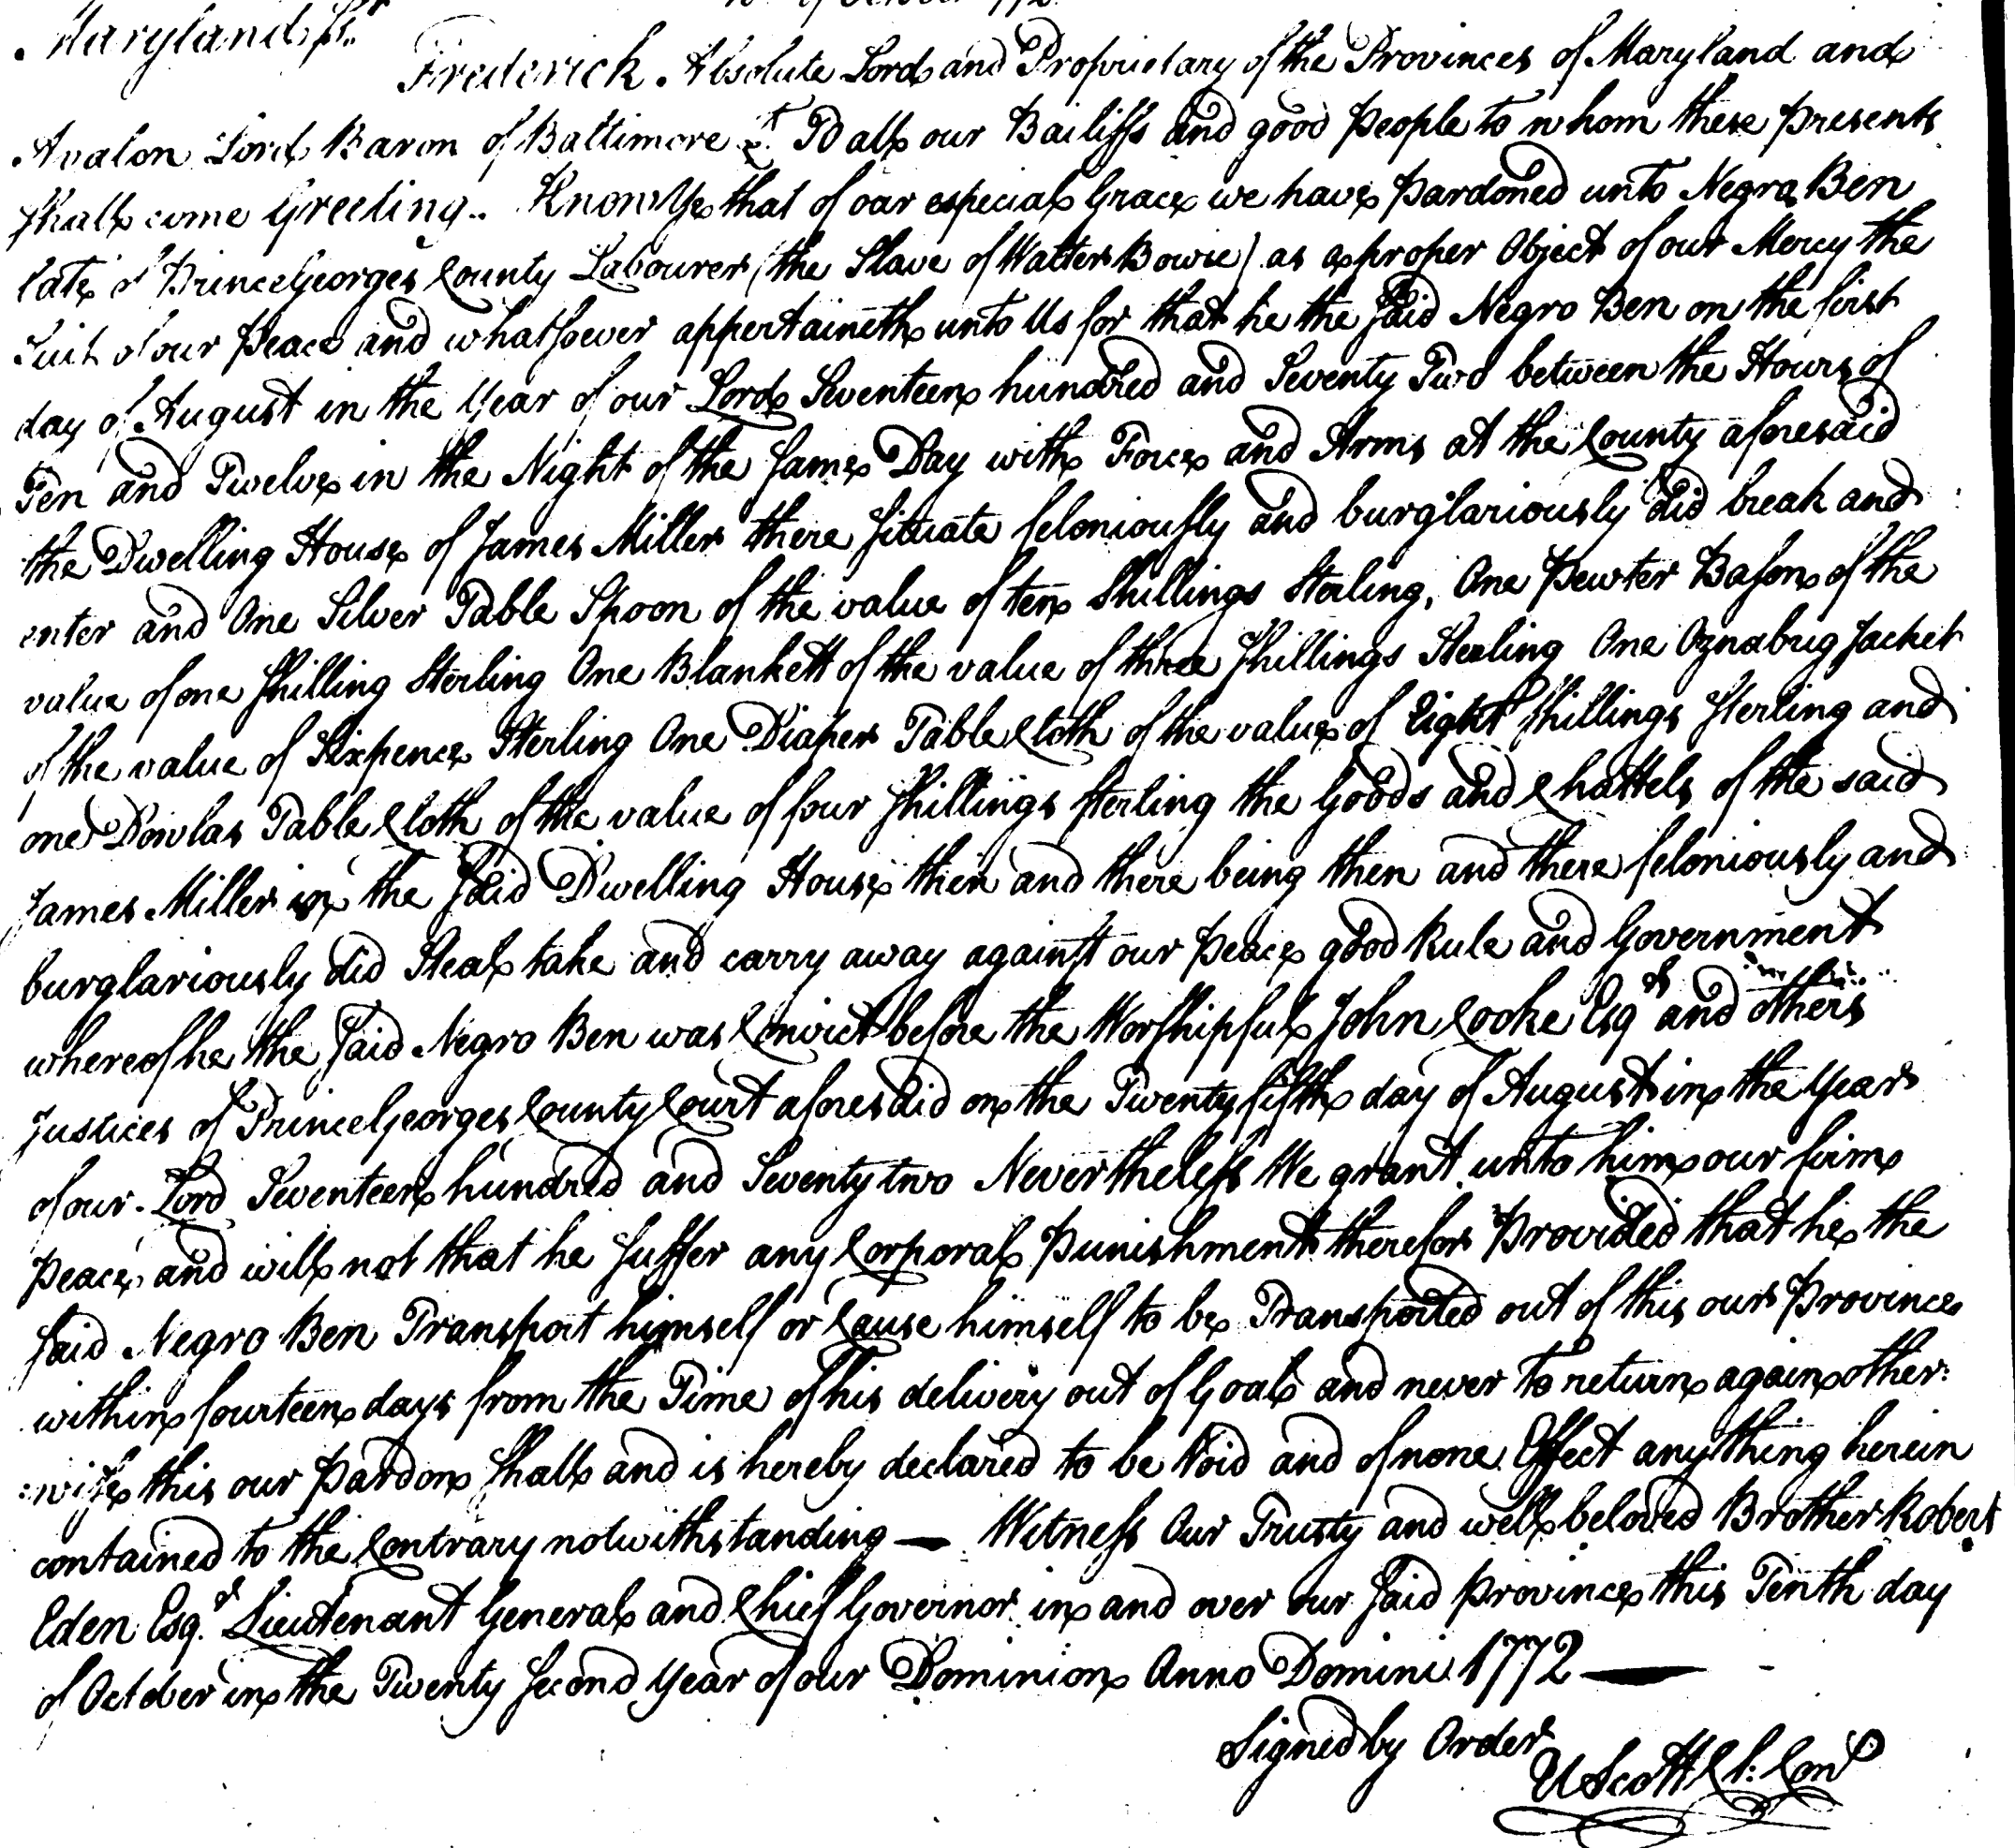 Maryland ss.
Frederick Absolute Lord and Proprietary of the Provinces of Maryland and
Avalon Lord Baron of Baltimore &c. To all our Bailiffs and good People to whom these Presents
shall come Greeting. Know Ye that of our especial Grace we have Pardoned unto Negro Ben
late of Prince Georges County Labourer (the Slave of Walter Bowie) as a proper Object of our Mercy the
Suit of our Peace and whatsoever appertaineth unto Us for that he the said Negro Ben on the first
day of August in the Year of our Lord Seventeen hundred and Seventy Two between the Hours of
Ten and Twelve in the Night of the same Day with Force and Arms at the County aforesaid
the Dwelling House of James Miller there situate feloniously and burglariously did break and
enter and One Silver Table Spoon of the value of ten Shillings Sterling, One Pewter Bason of the
value of one shilling Sterling One Blankett of the value of three shillings Sterling One Oznabrig Jacket
of the value of Sixpence Sterling One Diaper Table Cloth of the value of Eight shillings sterling and
one Dowlas Table Cloth of the value of four shillings sterling the Goods and Chattels of the said
James Miller in the said Dwelling House then and there being then and there feloniously and
burglariously did Steal take and carry away against our Peace good Rule and Government
whereof he the said Negro Ben was Convict before the Worshipful John Cooke Esqr and others
Justices of Prince Georges County Court aforesaid on the Twenty fifth day of August in the Year
of our Lord Seventeen hundred and Seventy two Nevertheless We grant unto him our firm
Peace and will not that he suffer any Corporal Punishment therefor Provided that he the
said Negro Ben Transport himself or Cause himself to be Transported out of this our Province
within fourteen days from the Time of his delivery out of Goal and never to return again other:
:wise this our Pardon shall and is hereby declared to be Void and of none Effect any thing herein
contained to the Contrary notwithstanding — Witness Our Trusty and well beloved Brother Robert
Eden Esqr. Lieutenant General and Chief Governor in and over our said Province this Tenth day
of October in the Twenty second Year of our Dominion Anno Domini 1772 —
Signed by Order
U Scott Cl: Con